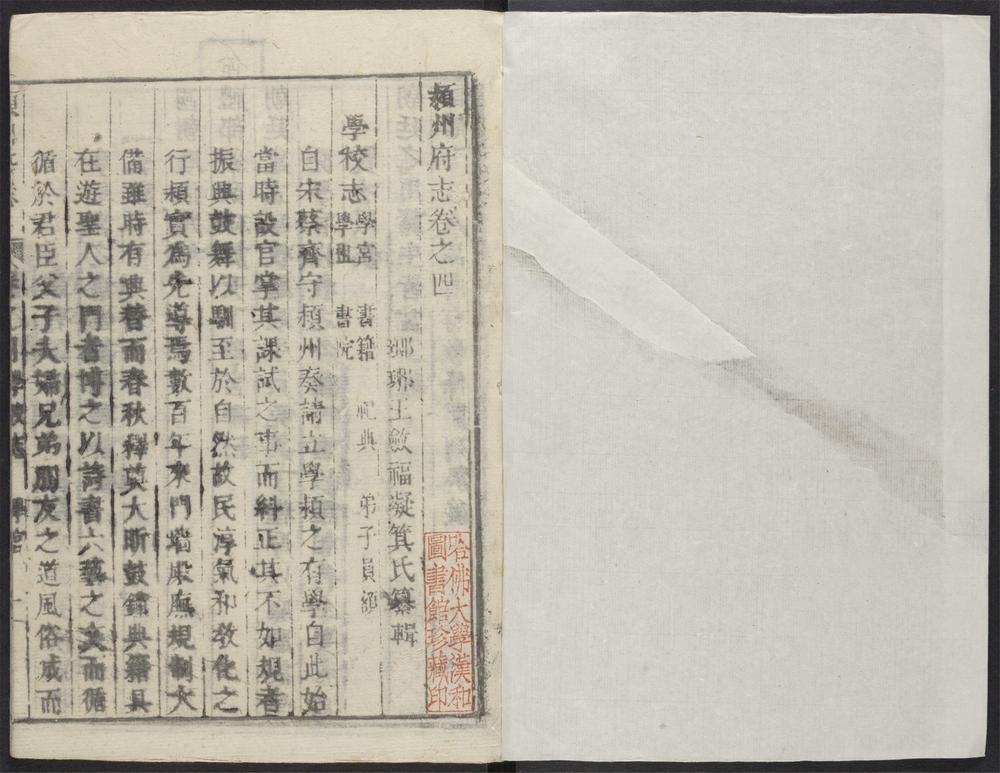 潁州府志卷之四
瑯琊王斂福凝箕氏纂輯
學校志 學宮 書籍 祀典 弟子員額
學租 書院
自宋蔡齊守潁州奏請立學潁之有學自此始
當時設官掌其課試之事而糾正其不如規者
振興鼓舞以馴至於自然故民淳氣和教化之
行潁實為先導焉數百年來門墻殿廡規制大
備雖時有興替而春秋釋奠大昕鼓鏞典籍具
在遊聖人之門者博之以詩書六藝之文而循
循於君臣父子夫婦兄弟朋友之道風俗成而
學校志 學宮 一
哈佛大學漢和
圖書館珍藏印